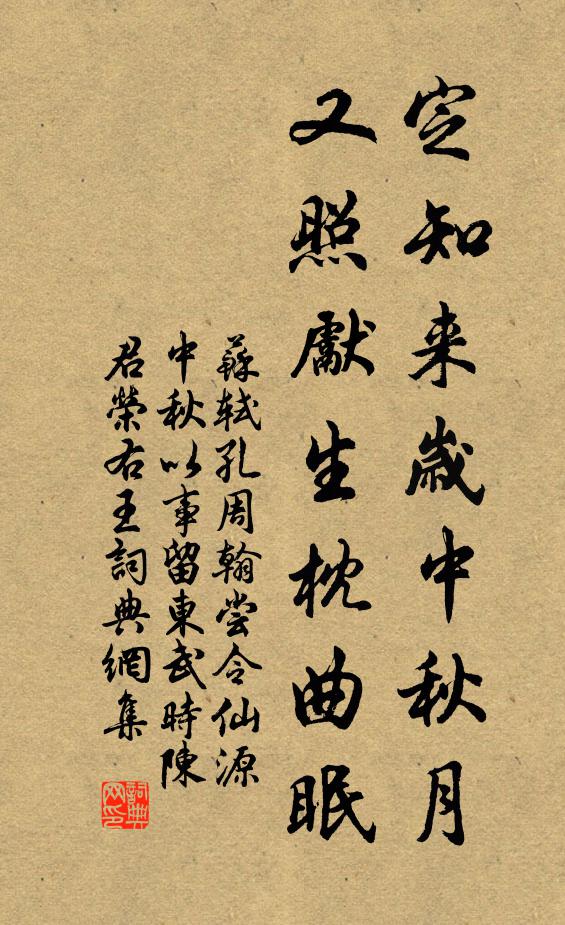 定知来歲中秋月
又照獻生枕曲眠
蘇軾孔周翰嘗令仙源
中秋以事留東武時陳
君榮右王詞典網集
詞典
网印